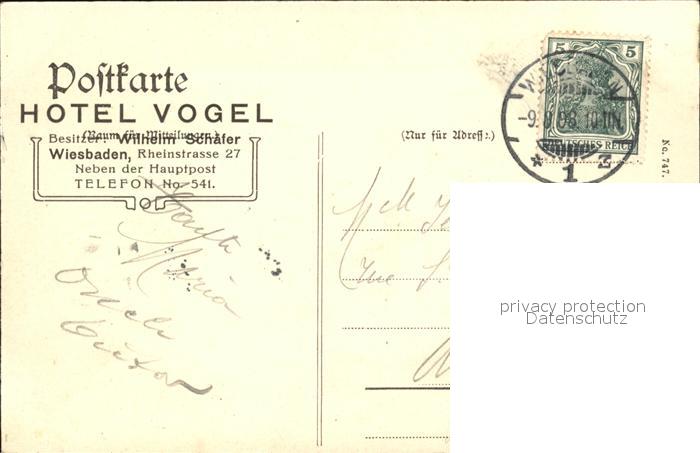 Postkarte
HOTEL VOGEL
(Raum für Mitteilungen.)
Besitzer: Wilhelm Schäfer
Wiesbaden, Rheinstrasse 27
Neben der Hauptpost
TELEFON No. 541.
(Nur für Adresse.)
5 5
DEUTSCHES REICH
* 1 z
No. 747.
Maria
privacy protection
Datenschutz